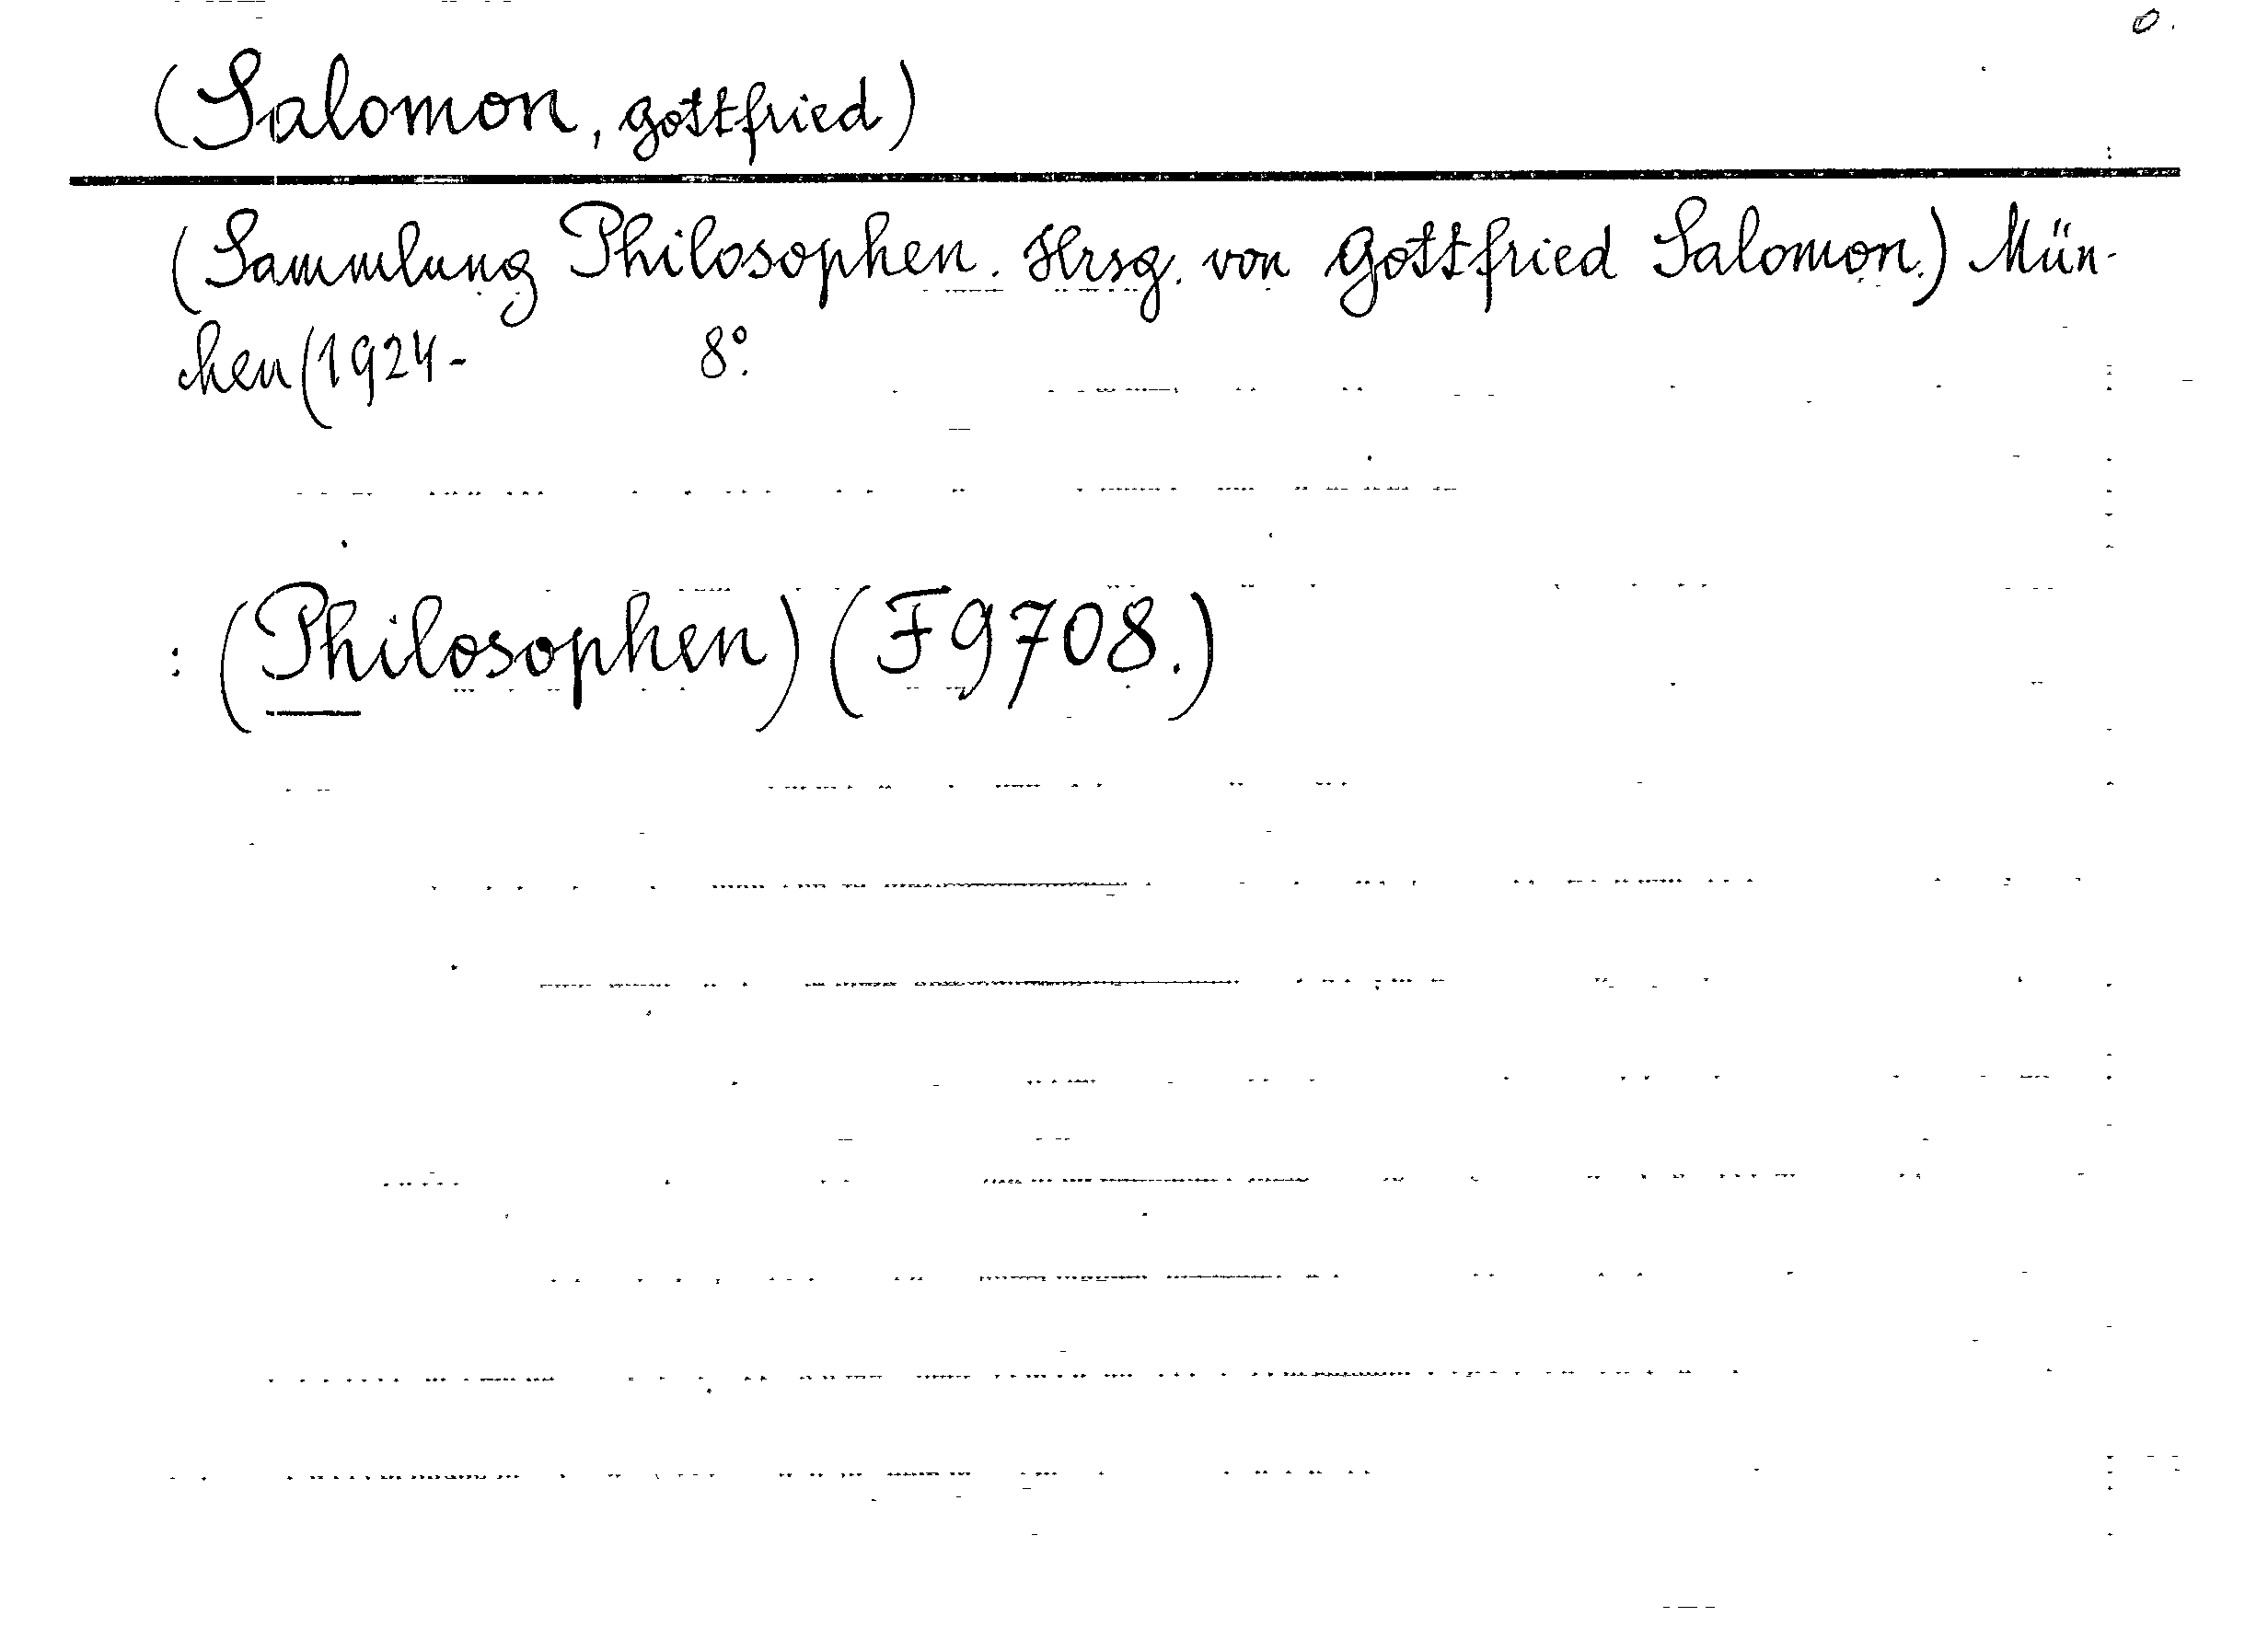 o.
(Salomon, Gottfried)
(Sammlung Philosophen. Hrsg. von Gottfried Salomon.) Mün-
chen (1924- 8°.
: (Philosophen) (F9708.)